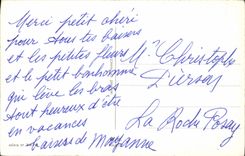 Merci petit chéri
pour tous tes baisers
et les petites fleurs
et le petit bonhomme
qui lève les bras
tout heureux d'être
en vacances
baisers de Marianne
Mr Christophe
La Roche Posay